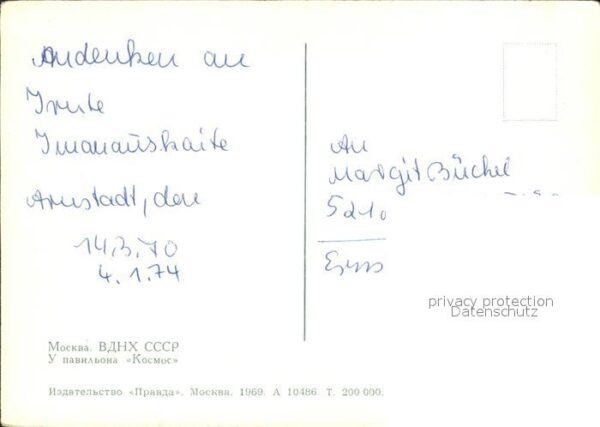 Andenken an
Irute
Imanauskaite
Arnstadt, den
14.3.70
4.1.74
An
Margit Büchel
5210
Москва. ВДНХ СССР
У павильона «Космос»
Издательство «Правда». Москва. 1969. А 10486. Т. 200 000.
privacy protection
Datenschutz